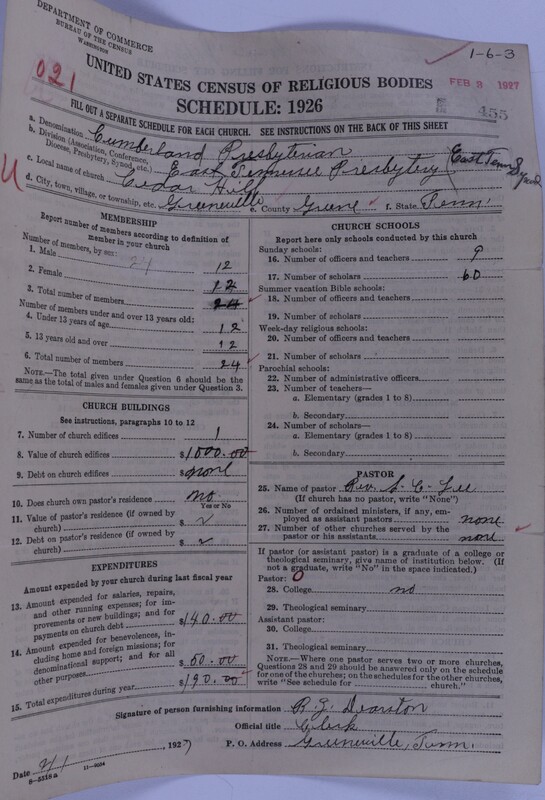 DEPARTMENT OF COMMERCE
BUREAU OF THE CENSUS
WASHINGTON
1-6-3
021
UNITED STATES CENSUS OF RELIGIOUS BODIES
FEB 3 1927
SCHEDULE: 1926
455
FILL OUT A SEPARATE SCHEDULE FOR EACH CHURCH. SEE INSTRUCTIONS ON THE BACK OF THIS SHEET
a. Denomination Cumberland Presbyterian
b. Division (Association, Conference, Diocese, Presbytery, Synod, etc.) East Tennessee Presbytery East Tenn Synod
c. Local name of church Cedar Hill
d. City, town, village, or township, etc. Greeneville e. County Greene f. State Tenn.
MEMBERSHIP
Report number of members according to definition of member in your church
Number of members, by sex:
1. Male 24 12
2. Female 12
3. Total number of members 24
Number of members under and over 13 years old:
4. Under 13 years of age 12
5. 13 years old and over 12
6. Total number of members 24
NOTE.—The total given under Question 6 should be the same as the total of males and females given under Question 3.
CHURCH BUILDINGS
See instructions, paragraphs 10 to 12
7. Number of church edifices 1
8. Value of church edifices $1000.00
9. Debt on church edifices $none
10. Does church own pastor's residence no
Yes or No
11. Value of pastor's residence (if owned by church) $
12. Debt on pastor's residence (if owned by church) $
EXPENDITURES
Amount expended by your church during last fiscal year
13. Amount expended for salaries, repairs, and other running expenses; for improvements or new buildings; and for payments on church debt $140.00
14. Amount expended for benevolences, including home and foreign missions; for denominational support; and for all other purposes $50.00
15. Total expenditures during year $190.00
CHURCH SCHOOLS
Report here only schools conducted by this church
Sunday schools:
16. Number of officers and teachers 9
17. Number of scholars 60
Summer vacation Bible schools:
18. Number of officers and teachers
19. Number of scholars
Week-day religious schools:
20. Number of officers and teachers
21. Number of scholars
Parochial schools:
22. Number of administrative officers
23. Number of teachers—
a. Elementary (grades 1 to 8)
b. Secondary
24. Number of scholars—
a. Elementary (grades 1 to 8)
b. Secondary
PASTOR
25. Name of pastor Rev. S. C. Lee
(If church has no pastor, write "None")
26. Number of ordained ministers, if any, employed as assistant pastors none
27. Number of other churches served by the pastor or his assistants none
If pastor (or assistant pastor) is a graduate of a college or theological seminary, give name of institution below. (If not a graduate, write "No" in the space indicated.)
Pastor: 0
28. College no
29. Theological seminary
Assistant pastor:
30. College
31. Theological seminary
NOTE.—Where one pastor serves two or more churches, Questions 28 and 29 should be answered only on the schedule for one of the churches; on the schedules for the other churches, write "See schedule for church."
Signature of person furnishing information R. J. Dearston
Official title Clerk
Date 2/1, 1927 P. O. Address Greeneville, Tenn.
8-5518a 11-9054